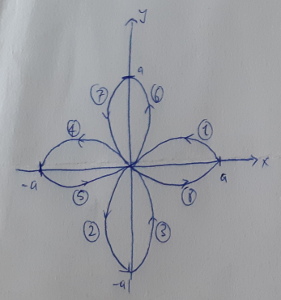 y
a
⑦ ⑥
④ ①
x
-a a
⑤ ⑧
② ③
-a